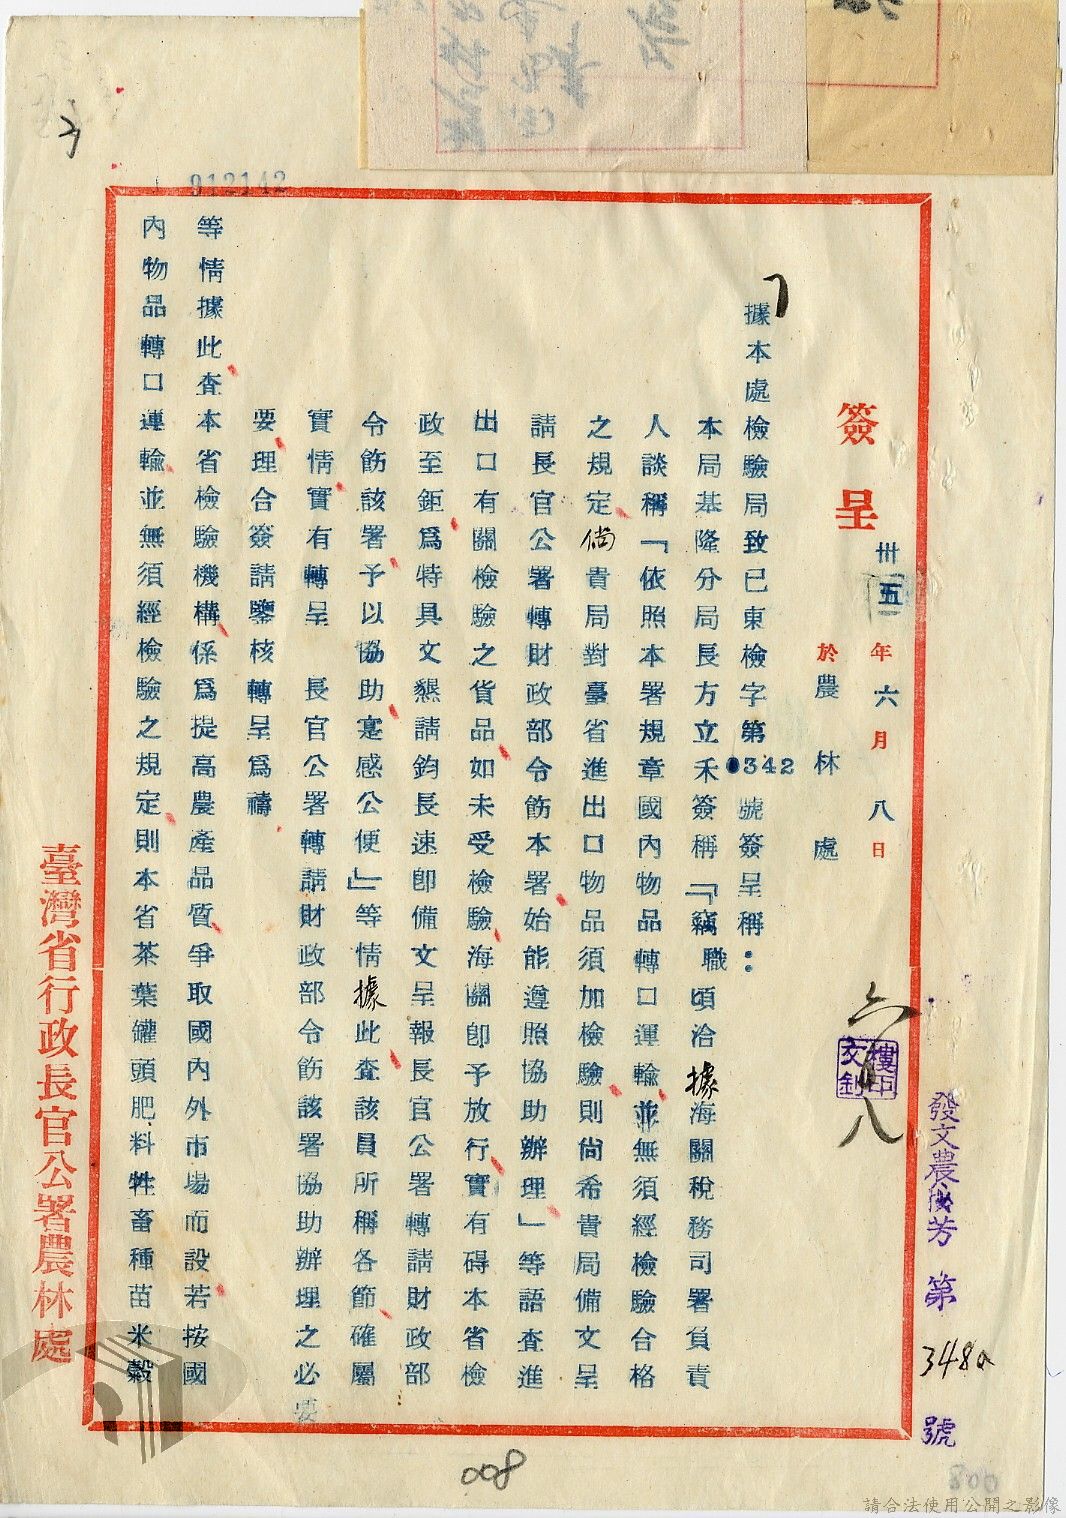 簽呈
卅五年六月八日
於農林處
據本處檢驗局致已東檢字第0342號簽呈稱：
本局基隆分局長方立禾簽稱『竊職頃洽據海關稅務司署負責
人談稱「依照本署規章國內物品轉口運輸並無須經檢驗合格
之規定倘貴局對臺省進出口物品須加檢驗則尚希貴局備文呈
請長官公署轉財政部令飭本署始能遵照協助辦理」等語查進
出口有關檢驗之貨品如未受檢驗海關即予放行實有碍本省檢
政至鉅爲特具文懇請鈞長速即備文呈報長官公署轉請財政部
令飭該署予以協助寔感公便』等情據此查該員所稱各節確屬
實情實有轉呈　長官公署轉請財政部令飭該署協助辦理之必要
要理合簽請鑒核轉呈爲禱
等情據此查本省檢驗機構係爲提高農產品質爭取國內外市場而設若按國
內物品轉口運輸並無須經檢驗之規定則本省茶葉罐頭肥料牲畜種苗米穀
臺灣省行政長官公署農林處
發文農芳第348號
六八
樓文釗印
912142
3
008
800
請合法使用公開之影像